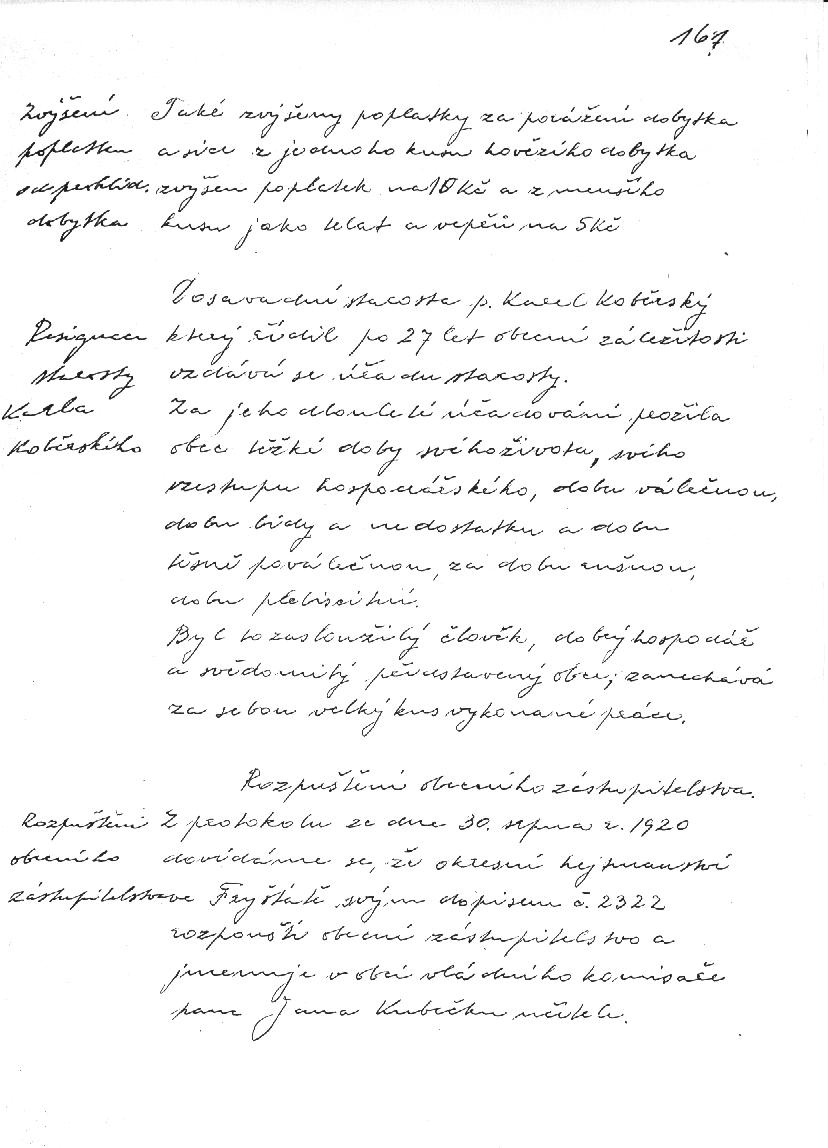 167
Zvýšení
poplatku
od prohlíd.
dobytka
Také zvýšeny poplatky za porážení dobytka
a sice z jednoho kusu hovězího dobytka
zvýšen poplatek na 10 Kč a z menšího
kusu jako telat a vepřů na 5 Kč
Dosavadní starosta p. Karel Koběrský
který řídil po 27 let obecní záležitosti
vzdává se úřadu starosty.
Resignace
starosty
Karla
Koběrského
Za jeho dlouleté úřadování prožila
obec těžké doby svého života, svého
vzestupu hospodářského, dobu válečnou,
dobu bídy a nedostatku a dobu
těsně poválečnou, za dobu rušnou,
dobu plebiscitní.
Byl to zasloužilý člověk, dobrý hospodář
a svědomitý představený obce; zanechává
za sebou velký kus vykonané práce.
Rozpuštění obecního zástupitelstva.
Rozpuštění
obecního
zástupitelstva
Z protokolu ze dne 30. srpna r. 1920
dovídáme se, že okresní hejtmanství
ve Fryštátě svým dopisem č. 2322
rozpouští obecní zástupitelstvo a
jmenuje v obci vládního komisaře
pana Jana Kubečku učitele.